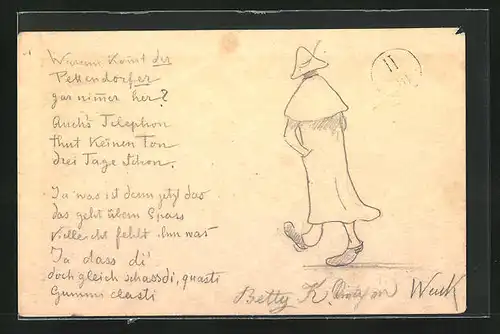 Warum kommt der
Pettendorfer
gar nimmer her?
Auch's Telephon
thut Keinen Ton
drei Tage schon.
Ja was ist denn jetzt das
das geht übern Spass
vielleicht fehlt ihm was
Ja dass di'
doch gleich schassdi, quasti
Gummi elasti
Betty K.
11